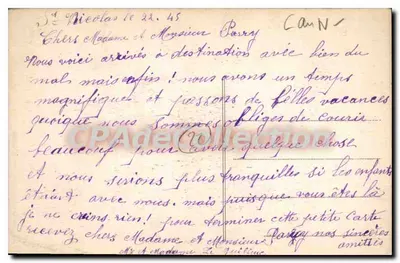 St Nicolas le 22. 45
Chers Madame et Monsieur Parry
Nous voici arrivés à destination avec bien du
mals mais enfin! nous avons un temps
magnifique et passons de belles vacances
quoique nous sommes obliges de courir
beaucoup pour avoir quelque chose
et nous serions plus tranquilles si les enfants
étaient avec nous. mais puisque vous êtes là
je ne crains rien! pour terminer cette petite carte
recevez chers Madame et Monsieur Parry nos sincères
amitiés
Mr et Madame Le
CPA